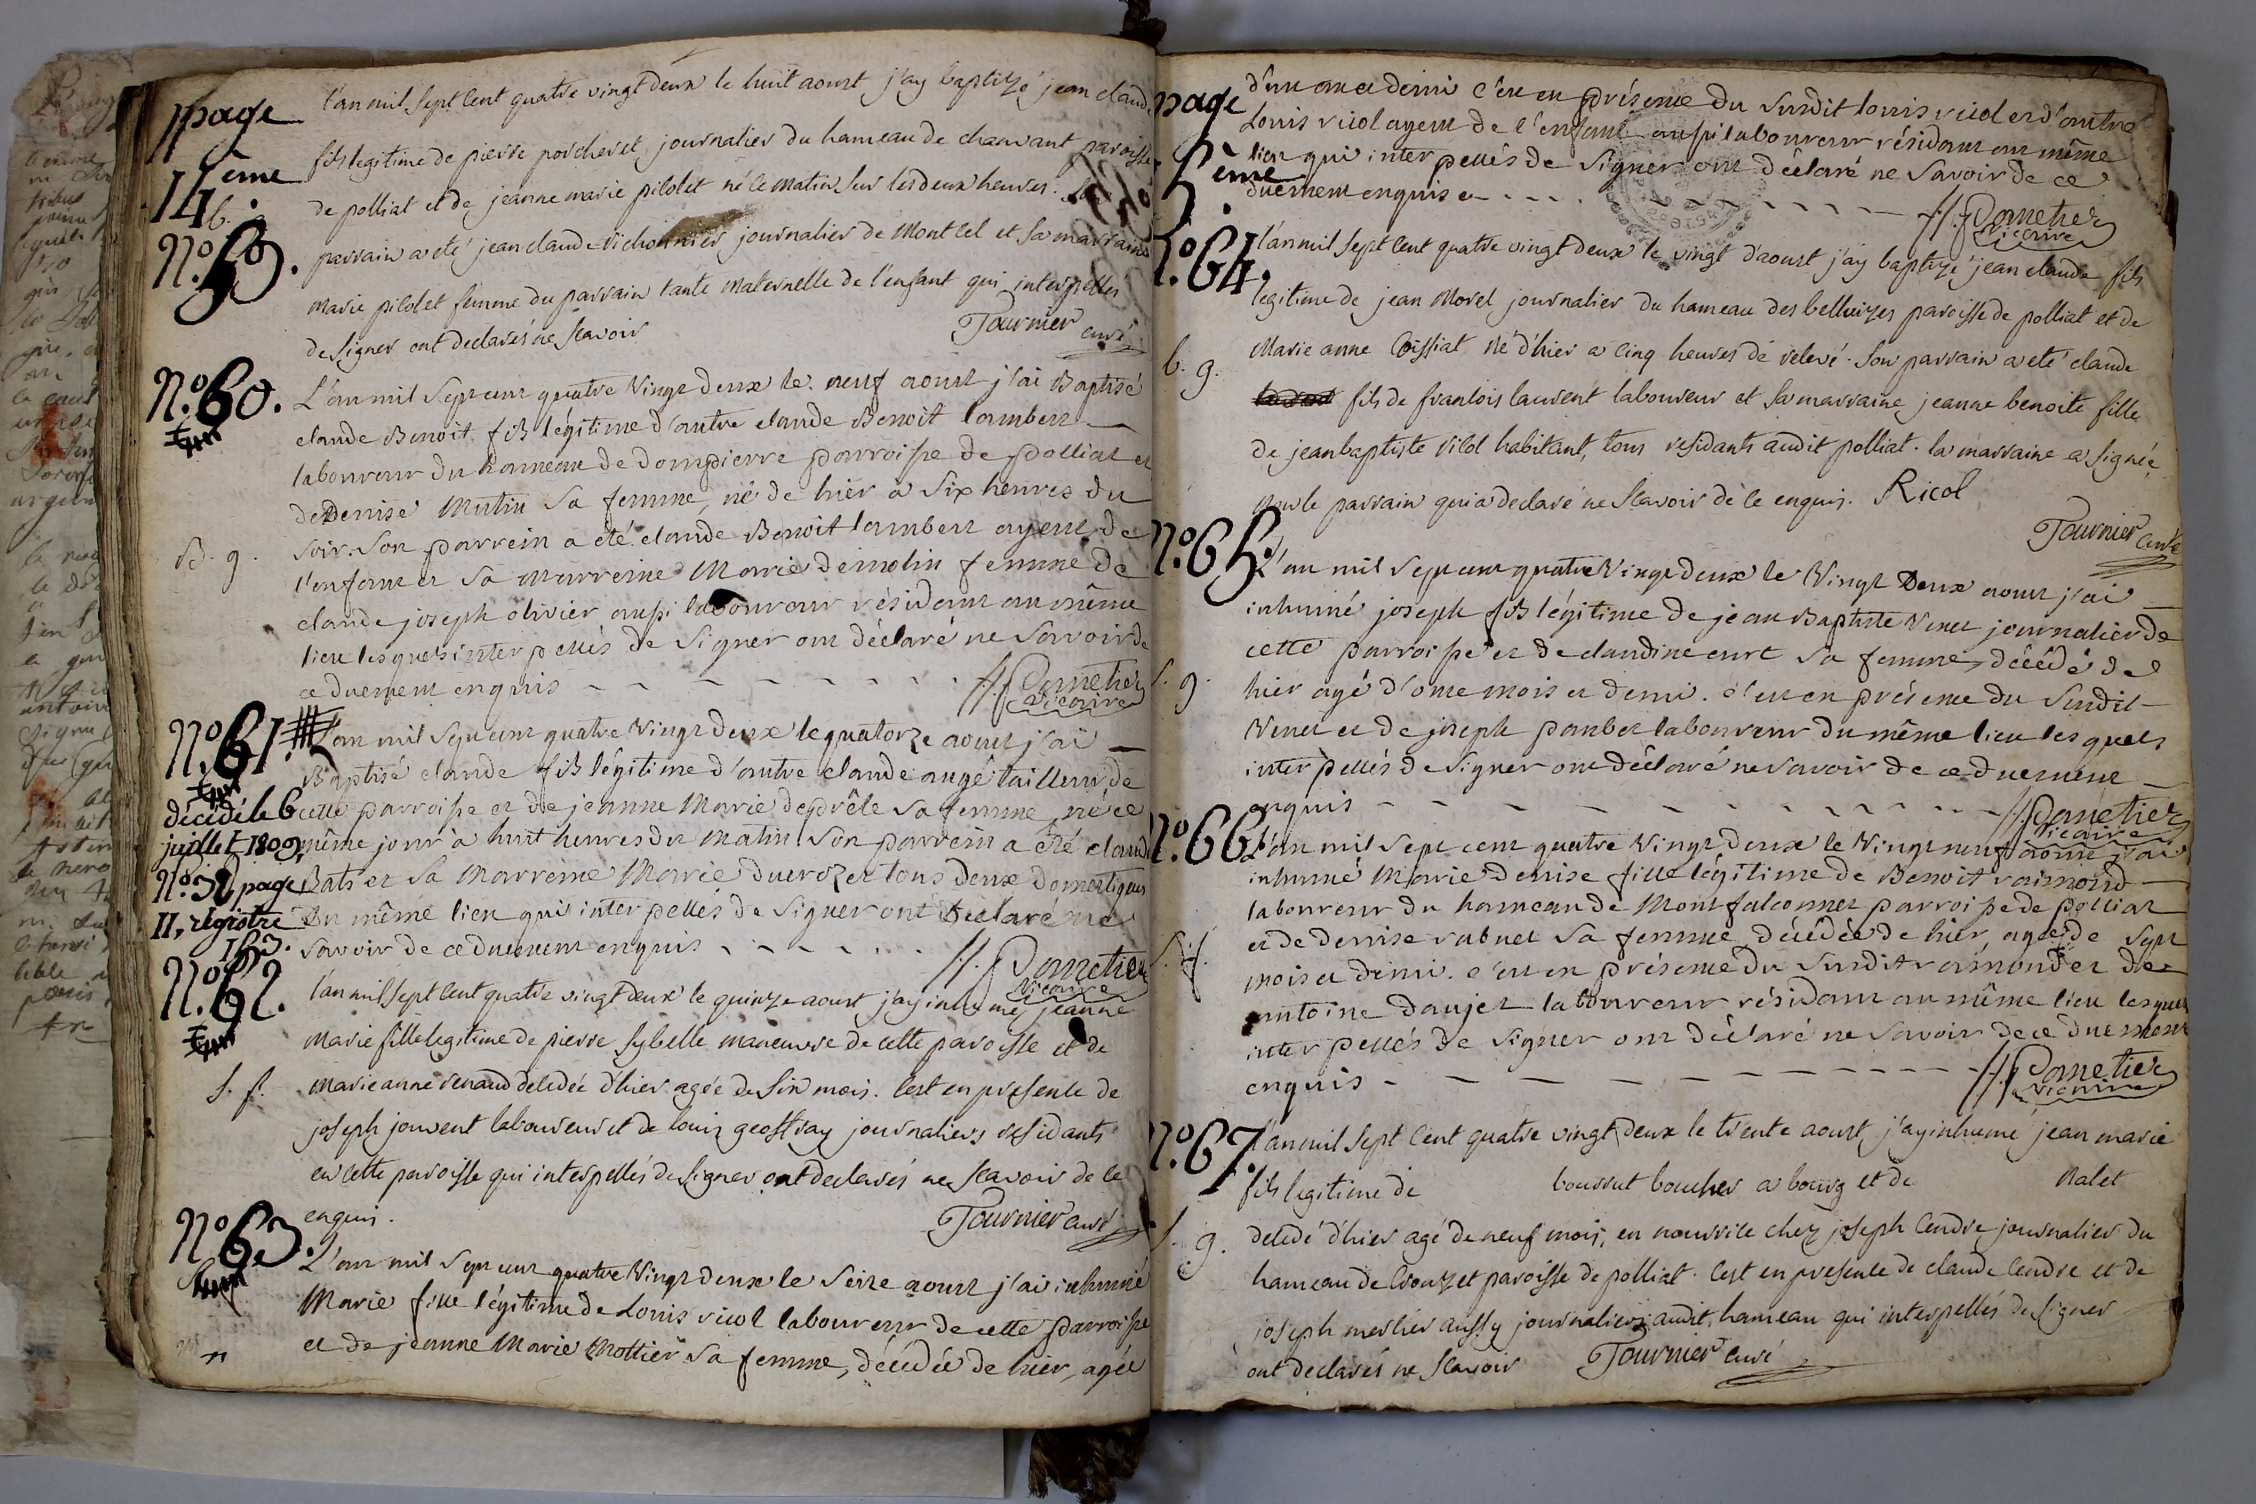 page
14ème
b. g
N.º 59.
l'an mil sept cent quatre vingt deux le huit aoust j'ay baptizé jean claude
fils legitime de pierre porcheret journalier du hameau de chanvant paroisse
de polliat et de jeanne marie pilolet né le matin sur les deux heures. Son
parrain a eté jean claude vichonnier journalier de Montcel et sa marraine
marie pilolet femme du parrain tante maternelle de l'enfant qui interpellés
de signer ont declarés ne scavoir
Tournier curé
N.º 60.
B. g.
L'an mil sept cent quatre vingt deux le neuf aout j'ai Baptisé
claude Benoit fils légitime d'autre claude Benoit lambert
laboureur du hameau de dompierre parroisse de polliat et
de Denise Mutin sa femme, né de hier à six heures du
soir. Son parrein a été claude Benoit lambert ayeul de
l'enfant et sa marreine Marie demolin femme de
claude joseph olivier aussi laboureur résidant au même
lieu lesquels interpellés de signer ont déclaré ne savoir de
ce duement enquis
Pometier
Vicaire
N.º 61.
décédé le 6
juillet 1809,
N.º 38 page
11, régistre
163.
L'an mil sept cent quatre vingt deux le quatorze aout j'ai
Baptisé claude fils légitime d'autre claude augé tailleur de
cette parroisse et de jeanne Marie desprêle sa femme, né ce
même jour à huit heures du matin son parrein a été claude
Bats et sa Marreine Marie duerozet tous deux domestiques
du même lieu qui interpellés de signer ont déclaré ne
savoir de ce duement enquis
Pometier
Vicaire
N.º 62.
s. f.
l'an mil sept cent quatre vingt deux le quinze aoust j'ay inhumé jeanne
marie fille legitime de pierre sybelle manoeuvre de cette paroisse et de
marie anne renaud decedée d'hier agée de six mois. C'est en presence de
joseph jouvent laboureur et de louis geoffray journaliers residants
en cette paroisse qui interpellés de signer ont declarés ne scavoir de ce
enquis.
Tournier curé
N.º 63.
L'an mil sept cent quatre vingt deux le seize aout j'ai inhumé
Marie fille légitime de Louis vicol laboureur de cette parroisse
et de jeanne Marie Mottier sa femme, décédée de hier, agée
page
d'un an et demi c'est en présence du susdit louis vicol et d'autre
Louis vicol ayeul de l'enfant aussi laboureur résidant au même
lieu qui interpellés de signer ont déclaré ne savoir de ce
duement enquis
Pometier
Vicaire
N.º 64.
b. g.
l'an mil sept cent quatre vingt deux le vingt d'aoust j'ay baptizé jean claude fils
legitime de jean Morel journalier du hameau des belluizes paroisse de polliat et de
Marie anne Coissiat né d'hier a cinq heures de relevé. Son parrain a eté claude
fils de francois laurent laboureur et sa marraine jeanne benoite fille
de jean baptiste vicol habitant, tous residants audit polliat. la marraine a signée
non le parrain qui a declaré ne scavoir de ce enquis. Ricol
Tournier curé
N.º 65.
s. g.
L'an mil sept cent quatre vingt deux le vingt Deux aout j'ai
inhumé joseph fils légitime de jean Baptiste Venet journalier de
cette parroisse et de claudine curt sa femme, décédé de
hier agé d'onze mois et demi. c'est en présence du susdit
Venet et de joseph pambet laboureur du même lieu lesquels
interpellés de signer ont déclaré ne savoir de ce duement
enquis
Pometier
Vicaire
N.º 66.
s. f.
L'an mil sept cent quatre vingt deux le vingt neuf aout j'ai
inhumé Marie denise fille légitime de Benoit raimond
laboureur du hameau de Montfalconnet parroisse de polliat
et de denise rabuel sa femme, décédée de hier, agée de sept
mois et demi. c'est en présence du susdit raimond et de
antoine daujet laboureur résidant au même lieu lesquels
interpellés de signer ont déclaré ne savoir de ce duement
enquis
Pometier
Vicaire
N.º 67.
s. g.
l'an mil sept cent quatre vingt deux le trente aoust j'ay inhumé jean marie
fils legitime de boussut boucher a bourg et de Nalet
decedé d'hier agé de neuf mois, en nourrice chez joseph Cendre journalier du
hameau de Crouzet paroisse de polliat. C'est en presence de claude Cendre et de
joseph merlier aussy journaliers audit hameau qui interpellés de signer
ont declarés ne scavoir
Tournier curé